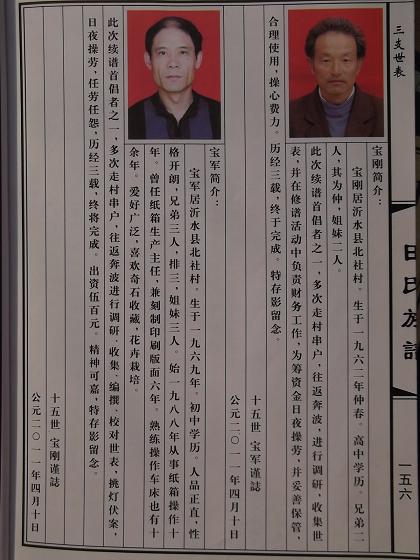 三支世表
田氏族譜
一五六
宝刚简介：
宝刚居沂水县北社村。生于一九六二年仲春。高中学历。兄弟二
人，其为仲，姐妹二人。
此次续谱首倡者之一，多次走村串户，往返奔波，进行调研，收集世
表，并在修谱活动中负责财务工作，为筹资金日夜操劳，并妥善保管，
合理使用，操心费力。历经三载，终于完成。特存影留念。
十五世 宝军谨誌
公元二〇一一年四月十日
宝军简介：
宝军居沂水县北社村。生于一九六九年。初中学历。人品正直，性
格开朗，兄弟三人，排三，姐妹三人。始一九八八年从事纸箱操作十
年。曾任纸箱生产主任，兼刻制印刷版面六年。熟练操作车床也有十
余年。爱好广泛，喜欢奇石收藏，花卉栽培。
此次续谱首倡者之一，多次走村串户，往返奔波进行调研、收集、编撰、校对世表，挑灯伏案，
日夜操劳，任劳任怨，历经三载，终将完成。出资伍百元。精神可嘉，特存影留念。
十五世 宝刚谨誌
公元二〇一一年四月十日